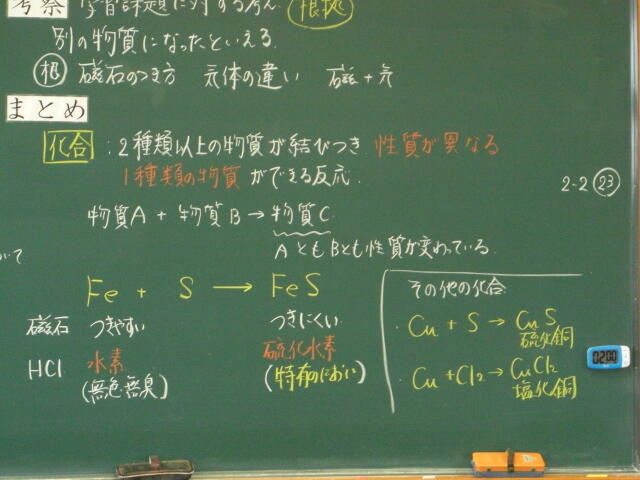 考察 学習課題に対する考え 根拠
別の物質になったといえる.
根 磁石のつき方 元体の違い 磁+元
まとめ
化合 : 2種類以上の物質が結びつき 性質が異なる
1種類の物質 ができる反応.
2-2 23
物質A + 物質B → 物質C
AともBとも性質が変わっている.
いて
Fe + S → FeS
磁石 つきやすい つきにくい
HCl 水素 硫化水素
(無色無臭) (特有のにおい)
その他の化合
・Cu + S → CuS
硫化銅
・Cu + Cl2 → CuCl2
塩化銅
0200